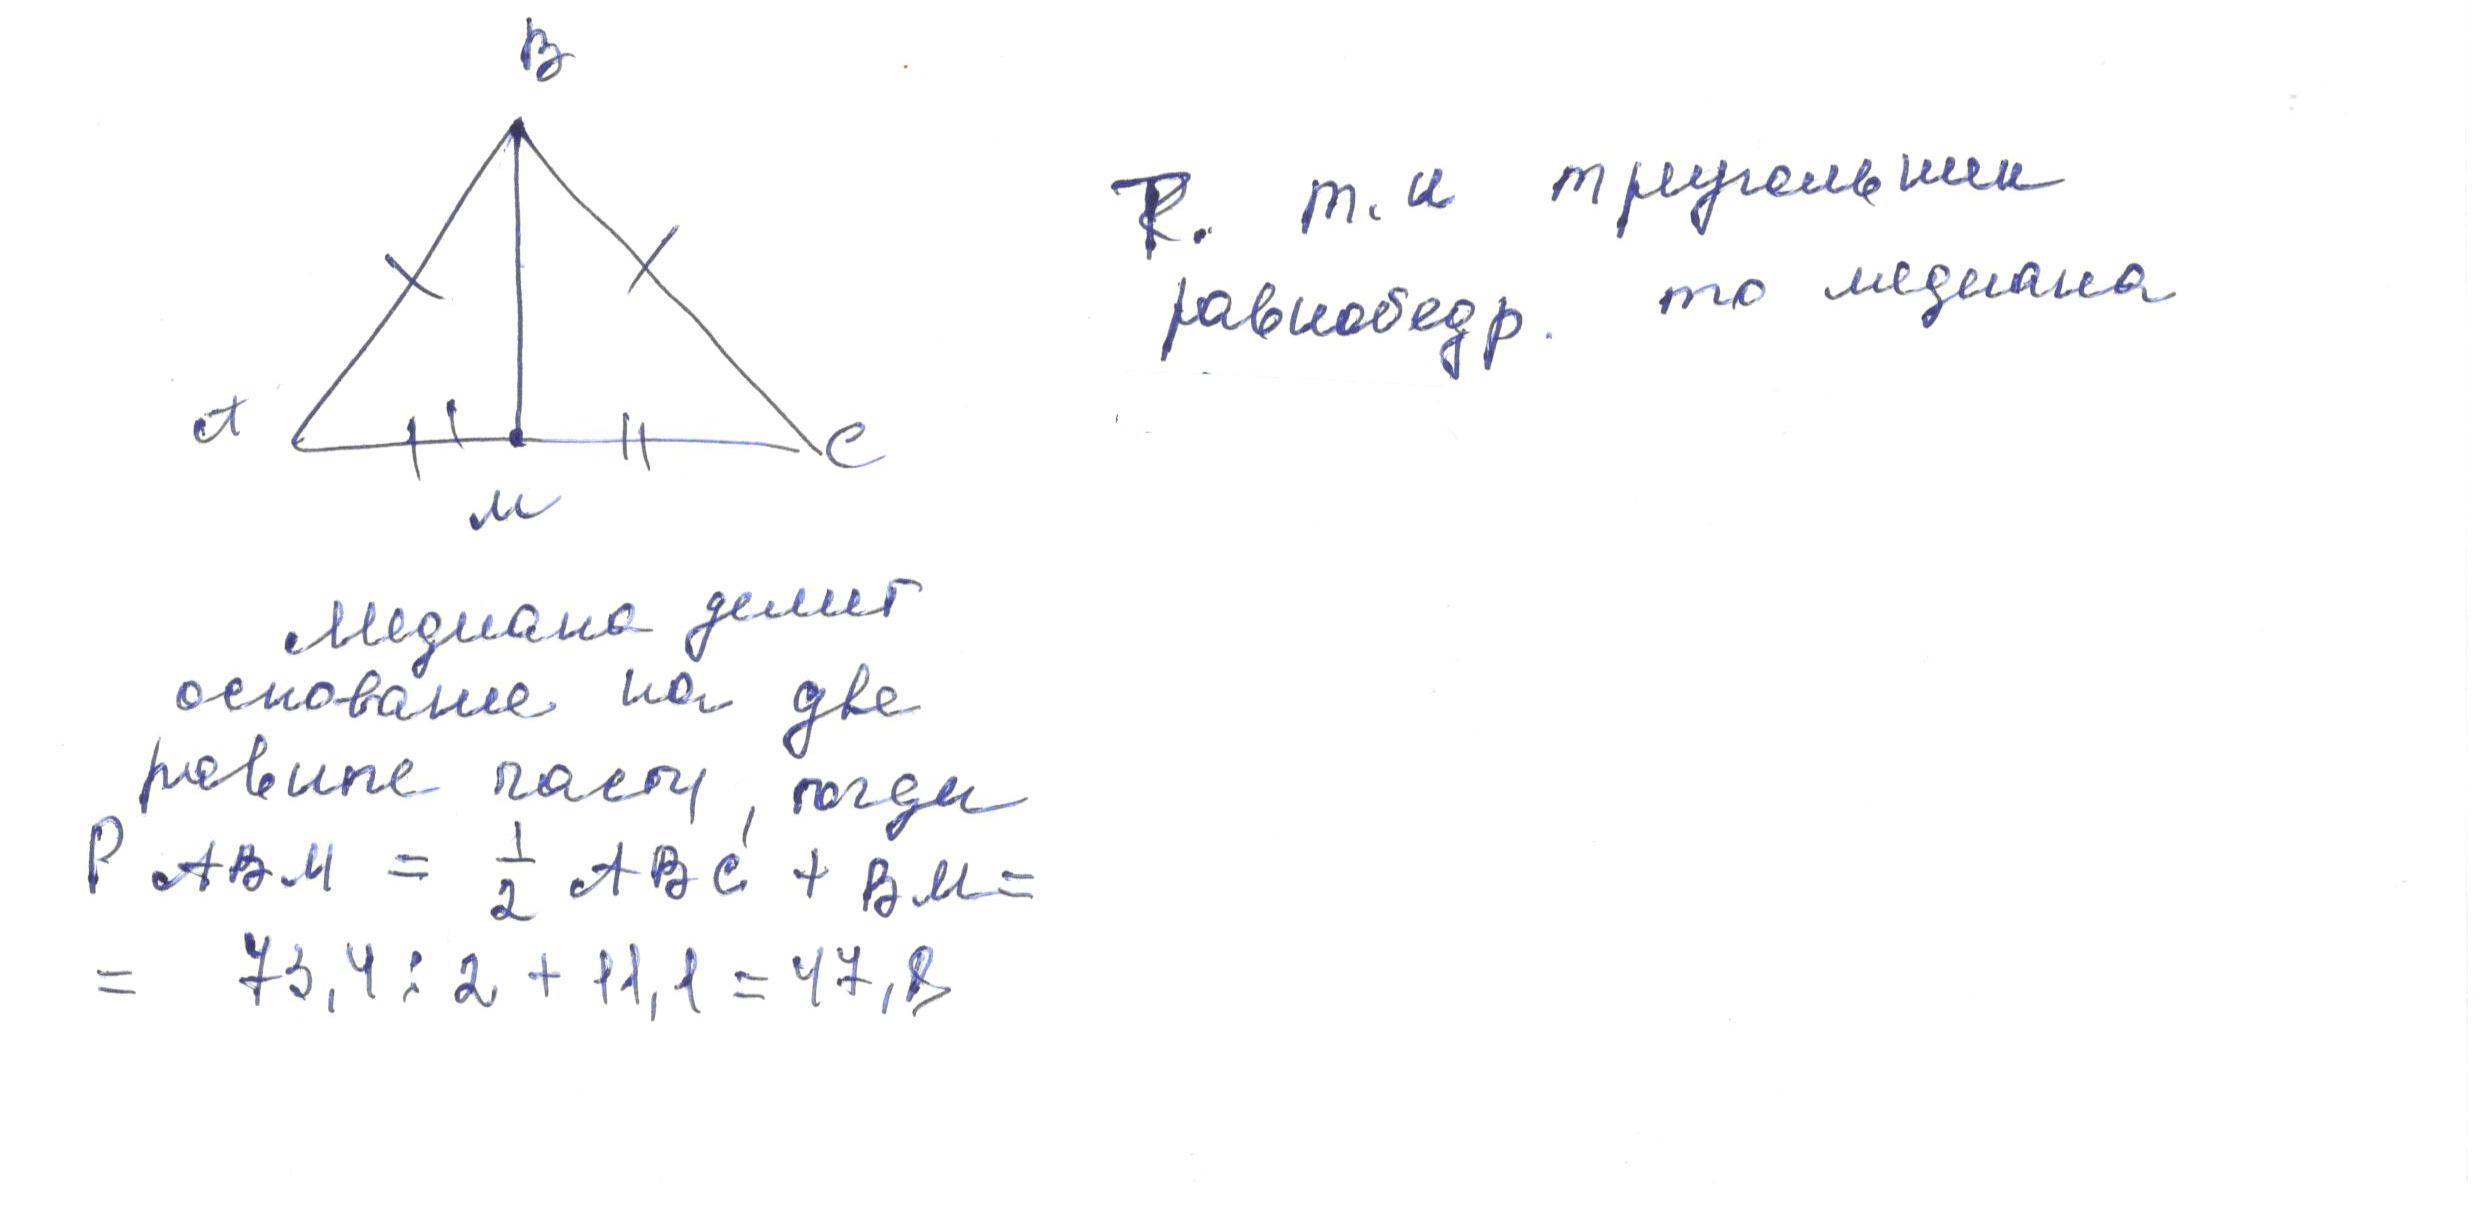 B
A
C
M
Медиана делит
основание на две
равные части, тогда
P ABM = 1/2 ABC + BM =
= 73,4 : 2 + 11,1 = 47,8
R. т.к треугольник
равнобедр. то медиана